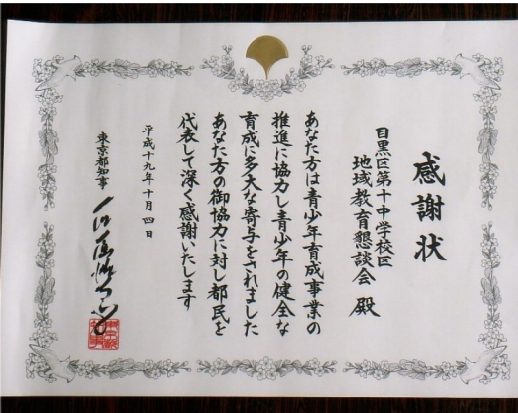 感謝状
目黒区第十中学校区
地域教育懇談会 殿
あなた方は青少年育成事業の
推進に協力し青少年の健全な
育成に多大な寄与をされました
あなた方の御協力に対し都民を
代表して深く感謝いたします
平成十九年十月四日
東京都知事 石原慎太郎